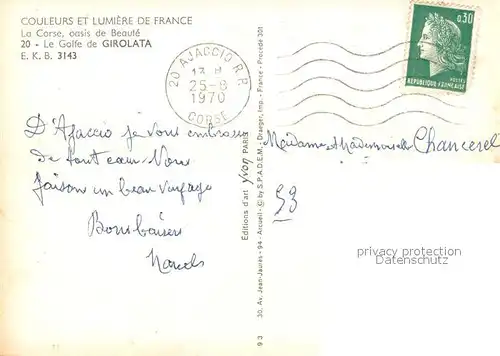 COULEURS ET LUMIÈRE DE FRANCE
La Corse, oasis de Beauté
20 - Le Golfe de GIROLATA
E. K. B. 3143
20 AJACCIO R.P.
13 H
25-8
1970
CORSE
0,30
POSTES
REPUBLIQUE FRANÇAISE
D'Ajaccio je vous embrasse
de tout cœur. Nous
faison un beau voyage
Bons baisers
Marcels
Madame et Mademoiselle Chancerel
53
Editions d'art yvon PARIS
30, Av. Jean-Jaurès - 94 - Arcueil - © by S.P.A.D.E.M. - Draeger, Imp. - France - Procédé 301
9 3
privacy protection
PRIVACY PROTECTION